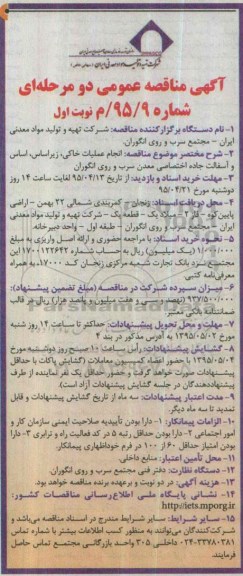 آگهی مناقصه عمومی دو مرحله‌ای
شماره ۹۵/۹/م نوبت اول
۱- نام دستگاه برگزارکننده مناقصه: شرکت تهیه و تولید مواد معدنی
ایران - مجتمع سرب و روی انگوران.
۲- شرح مختصر موضوع مناقصه: انجام عملیات خاکی، زیراساس، اساس
و آسفالت جاده اختصاصی معدن سرب و روی انگوران
۳- مهلت خرید اسناد و بازدید: از تاریخ ۹۵/۰۴/۱۳ لغایت ساعت ۱۴ روز
دوشنبه مورخ ۹۵/۰۴/۲۱
۴- محل دریافت اسناد: زنجان - کمربندی شمالی ۲۲ بهمن - اراضی
پایین کوه - فاز ۲ - میلاد یک - قطعه یک - شرکت تهیه و تولید مواد معدنی
ایران - مجتمع سرب و روی انگوران - طبقه اول - واحد دبیرخانه.
۵- نحوه خرید اسناد: با مراجعه حضوری و ارائه اصل واریزی به مبلغ
(یک میلیون) ریال به حساب شماره
بانک تجارت شعبه مرکزی زنجان کد ۱۷۰۰۰، به همراه
معرفی‌نامه کتبی
۶- میزان سپرده شرکت در مناقصه (مبلغ تضمین پیشنهاد):
۹۳۷/۵۰۰/۰۰۰ (نهصد و سی و هفت میلیون و پانصد هزار) ریال در قالب
ضمانتنامه بانکی معتبر
۷- مهلت و محل تحویل پیشنهادات: حداکثر تا ساعت ۱۴ روز شنبه
مورخ ۱۳۹۵/۰۵/۰۲ به آدرس مذکور در بند ۴
۸- گشایش پیشنهادات: رأس ساعت ۱۰ صبح روز دوشنبه مورخ
۱۳۹۵/۰۵/۰۴ با حضور اعضاء کمیسیون معاملات (گشایش پاکات با حداقل
پیشنهادات صورت خواهد گرفت و حضور حداقل یک نفر نماینده از طرف
پیشنهاددهندگان در جلسه گشایش پیشنهادات آزاد است).
۹- مدت اعتبار پیشنهادات: سه ماه از تاریخ گشایش پیشنهادات و قابل
تمدید تا سه ماه دیگر.
۱۰- الزامات پیمانکار: ۱- دارا بودن تأییدیه صلاحیت ایمنی سازمان کار و
امور اجتماعی ۲- دارا بودن حداقل رتبه ۵ در کد فعالیت راه و ترابری ۳- دارا
بودن امتیاز حداقل ۶۰ از ۱۰۰ در فرم خوداظهاری پیمانکار.
۱۱- محل تأمین اعتبار: منابع داخلی
۱۲- دستگاه نظارت: دفتر فنی مجتمع سرب و روی انگوران.
۱۳- هزینه آگهی: در دو نوبت و برعهده برنده مناقصه خواهد بود.
۱۴- نشانی پایگاه ملی اطلاع‌رسانی مناقصات کشور:
http://iets.mporg.ir
۱۵- سایر شرایط: سایر شرایط مندرج در اسناد مناقصه می‌باشد و
شرکت‌کنندگان می‌توانند به منظور کسب اطلاعات بیشتر با شماره تماس
۰۲۴-۳۳۷۸۰۳۸۱ داخلی ۳۰۵ واحد بازرگانی مجتمع تماس حاصل
فرمایند.